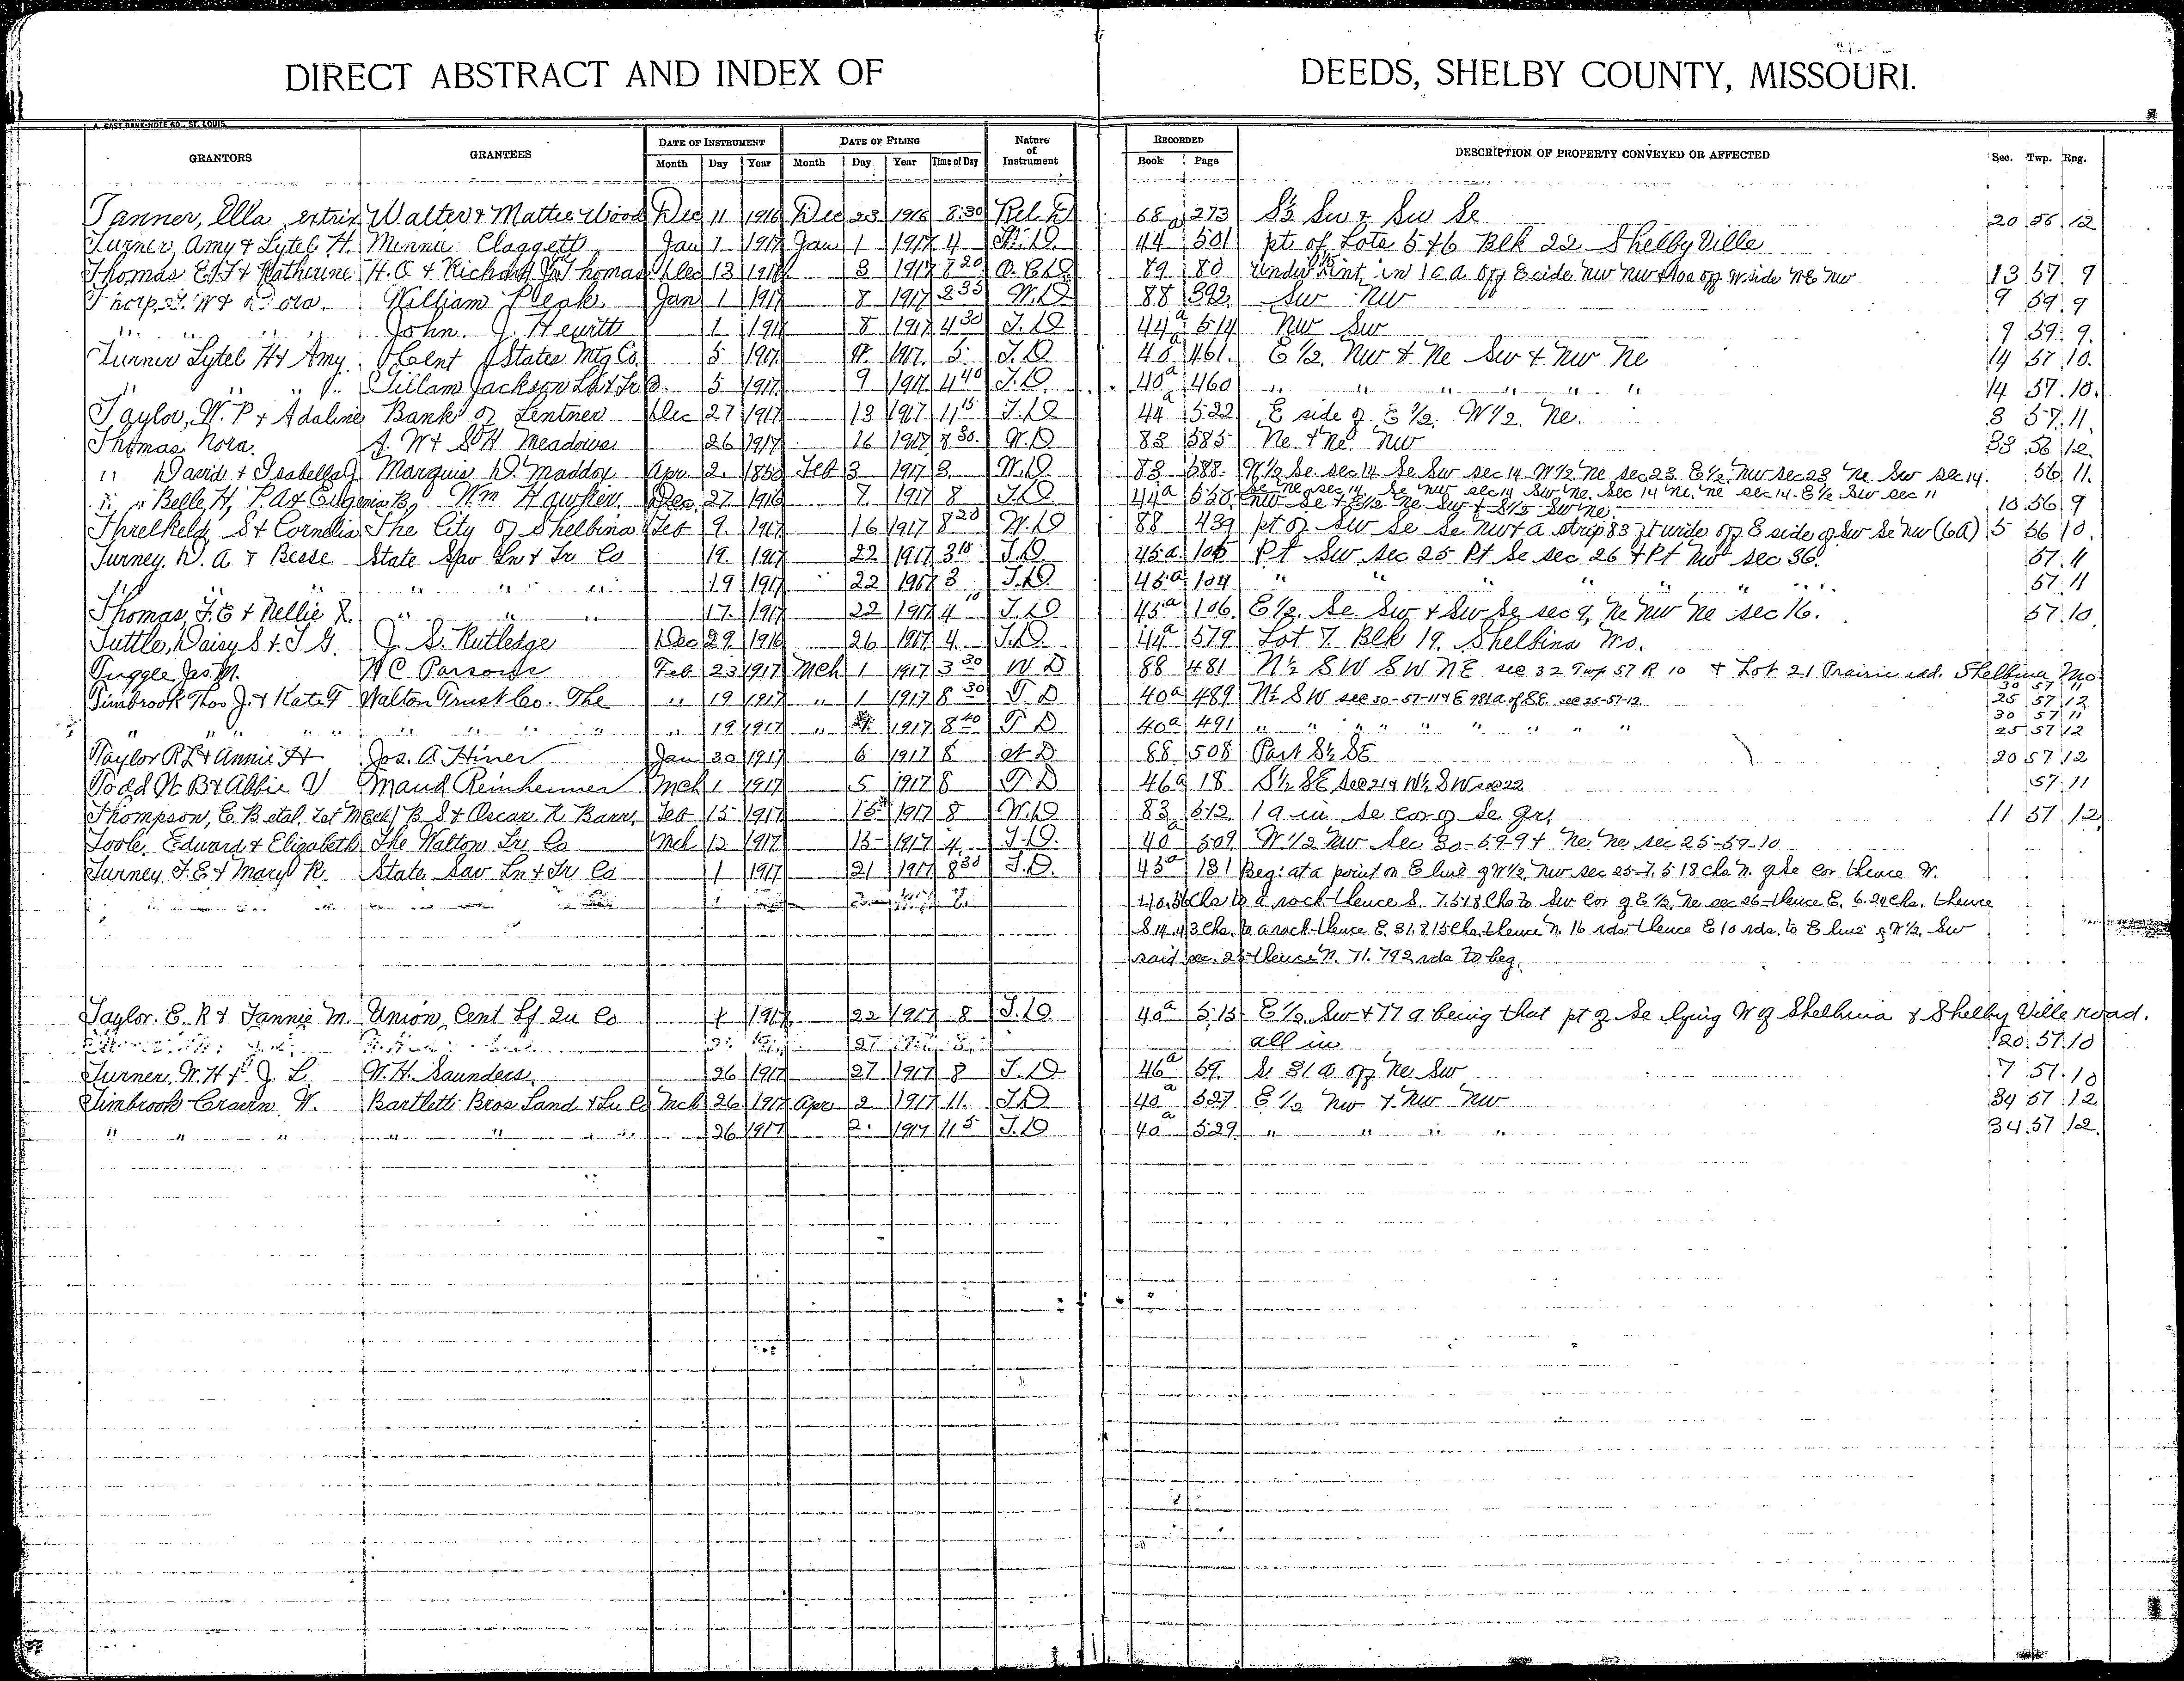 DIRECT ABSTRACT AND INDEX OF DEEDS, SHELBY COUNTY, MISSOURI.
GRANTORS GRANTEES DATE OF INSTRUMENT DATE OF FILING Nature of Instrument RECORDED DESCRIPTION OF PROPERTY CONVEYED OR AFFECTED Sec. Twp. Rng.
Month Day Year Month Day Year Time of Day Book Page
Tanner, Ella extrix Walter & Mattie Wood Dec 11 1916 Dec 23 1916 8:30 Rel D 68 273 S½ Sw & Sw Se 20 56 12
Turner, Amy & Lytel H. Minnie Claggett Jan 1 1917 Jan 1 1917 4 44a 501 pt of Lots 5 & 6 Blk 22 Shelbyville
Thomas & Katherine H. O & Richard Thomas Dec 13 1916 3 1917 8 20 89 80 in 10 a off E side Nw Nw & 10a off W side Ne Nw 13 57 9
Thorp, W & Dora William Peak Jan 1 1917 8 1917 2 35 W.D 88 392 Sw Nw 9 59 9
" " " John J. Hewitt 1 1917 8 1917 4 30 T.D 44a 514 Nw Sw 9 59 9.
Turner Lytel H & Amy Cent States Mtg Co. 5 1917 9 1917. 5 T.D 40a 461. E ½. Nw & Ne Sw & Nw Ne 14 57 10.
" " " Tillam Jackson 5 1917 9 1917 4 40 T.D 40a 460 " " " " " 14 57 10.
Taylor, W. P & Adaline Bank of Lentner Dec 27 1917 13 1917 11 15 T.D 44a 522 E side of E ½. W ½. Ne. 3 57 11.
Thomas Nora. A. W & S H Meadows 26 1917 16 1917 8 30 W.D 83 585 Ne & Ne Nw 33 56 12.
" David & Isabella Marquis D. Maddox Apr. 2. Feb 3 1917 3 W.D 83 588. W ½ Se sec 14 Se Sw sec 14 W ½ Ne sec 23. E ½ Nw sec 23 Ne Sw sec 14. 56 11.
Se Ne sec 14 Se Nw sec 14 Sw Ne. Sec 14 Ne Ne sec 14. E ½ Sw sec 11
" " Belle H, P. A & Eugenia B, Wm Hawkew Dec 27 1916 7 1917 8 T.D 44a 10 56 9
Threlkeld, S & Cornelia The City of Shelbina Feb 9 1917 16 1917 8 20 W.D 88 439 pt of Sw Se Se Nw & a strip 83 ft wide off E side of Sw Se Nw (6a) 5 56 10.
Turney. W. A & Besse State Sav Ln & Tr Co 19 1917 22 1917 3 10 T.D 45a 105 Pt Sw sec 25 Pt Se sec 26 & Pt Nw sec 36. 57. 11
" " " " " " 19 1917 22 1917 3 T.D 45a 104 " " " " " " 57. 11
Thomas, J. E & Nellie R. " " " 17 1917 22 1917 4 10 T.D 45a 106 E ½. Se. Sw & Sw Se sec 9, Ne Nw Ne sec 16. 57. 10
Tuttle, Daisy S & J. G. J. S. Rutledge Dec 29 1916 26 1917 4 T.D 44a 579 Lot 7. Blk 19. Shelbina Mo.
Tuggle Jas. M. W C Parsons Feb 23 1917 Mch 1 1917 3 30 W D 88 481 N½ SW SW NE sec 32 Twp 57 R 10 & Lot 21 Prairie add. Shelbina Mo
Timbrook Thos J. & Kate F Walton Trust Co. The " 19 1917 " 1 1917 8 30 T D 40a 489 N½ SW sec 30-57-11 & E 98½ a. of SE sec 25-57-12. 30 57 11
25 57 12
" " " " " " " " " 19 1917 " 1917 8 40 T D 40a 491 " " " " " " " 30 57 11
25 57 12
Taylor R L & Annie H Jos. A Hiner Jan 30 1917 6 1917 8 W D 88 508 Part S½ SE 20 57 12
Todd W B & Abbie V Maud Reinheimer Mch 1 1917 5 1917 8 T D 46a 18 S½ SE sec 21 & W½ SW sec 22 57. 11
Thompson, E. B etal. B. S & Oscar. R Barr, Feb 15 1917 15 1917 8 W.D 83 512 1 a in Se cor of Se qr, 11 57 12
Toole, Edward & Elizabeth The Walton Tr Co Mch 13 1917 13 1917 4 T.D. 40a 509 W ½ Nw Sec 30-59-9 & Ne Ne sec 25-59-10
Turney. J. E & Mary R. State Sav Ln & Tr Co 1 1917 21 1917 8 30 T.D. 45a 131 Beg: at a point on E line of W ½ Nw sec 25-7. 5.18 chs N. of Se cor thence W.
Chs to a rock thence S. 7.518 Chs to Sw Cor of E ½, Ne sec 26-thence E. 6.24 chs. thence
S 14.43 Chs. to a rock-thence E. 31.815 Chs. thence N. 16 rds thence E 10 rds. to E line of W ½. Sw
said sec. 25 thence N. 71. 792 rds to beg.
Taylor. E. R & Fannie M. Union Cent Lf In Co 1 1917 22 1917 8 T.D 40a 515 E ½. Sw & 77 a being that pt of Se lying W of Shelbina & Shelbyville road.
all in 20. 57 10
Turner, W. H & J. L W. H. Saunders 26 1917 27 1917 8 T.D 46a 59 S. 31 a off Ne Sw 7 57 10
Timbrook W. Bartlett Bros Land & Ln Co Mch 26 1917 Apr 2 1917 11. T.D 40a 527 E ½ Nw & Nw Nw 34 57 12
" " " " " " 26 1917 2. 1917 11 5 T.D 40a 529 " " " " 34 57 12.